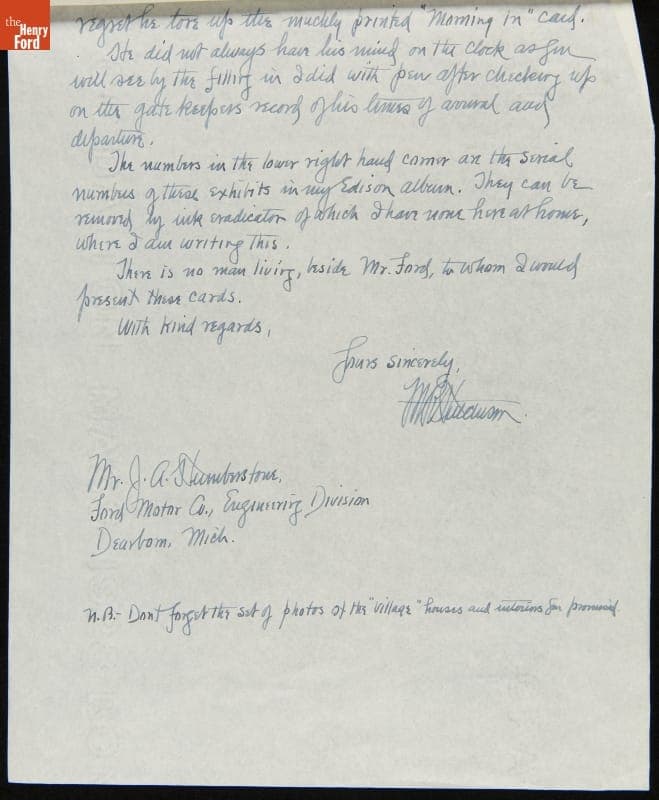 the
Henry
Ford
regret he tore up the muchly printed "Morning In" card.
He did not always have his mind on the clock as you
will see by the filling in I did with pen after checking up
on the gate keepers record of his times of arrival and
departure.
The numbers in the lower right hand corner are the serial
numbers of these exhibits in my Edison album. They can be
removed by ink eradicator of which I have none here at home,
where I am writing this.
There is no man living, beside Mr. Ford, to whom I would
present these cards.
With kind regards,
Yours sincerely,
M R Hutchison.
Mr. J. A. Humberstone,
Ford Motor Co., Engineering Division
Dearborn, Mich.
N.B.- Dont forget the set of photos of the "village" houses and interiors you promised.